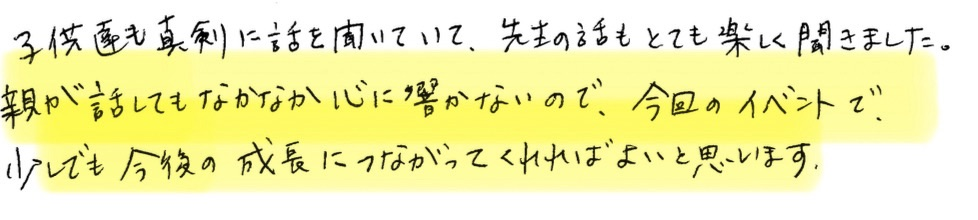 子供達も真剣に話を聞いていて、先生の話もとても楽しく聞きました。
親が話してもなかなか心に響かないので、今回のイベントで、
少しでも今後の成長につながってくれればよいと思います。